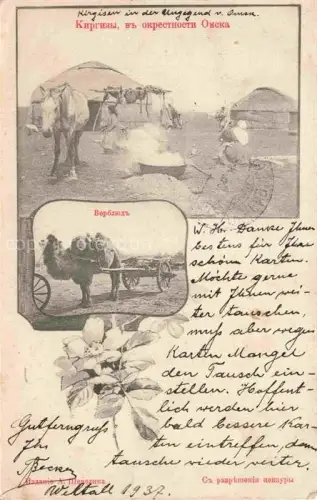 Kirgisen in der Umgegend v. Omsk.
Киргизы, въ окрестности Омска
Верблюдъ
W. H. Danke Ihnen
bestens für Ihre
schöne Karten.
Möchte gerne
mit Ihnen wei-
ter tauschen,
muß aber wegen
Karten Mangel
den Tausch ein-
stellen. Hoffent-
lich werden hier
bald bessere Kar-
ten eintreffen, dann
tausche wieder weiter.
Gutferngruß
Ihr
Becker
Weltall 1937.
Изданіе А.
Съ разрѣшенія цензуры